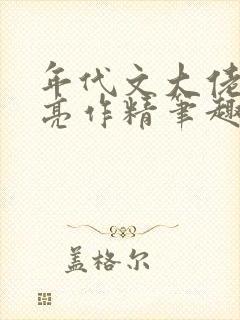 年代文大佬
亮作精笔趣
盖格尔